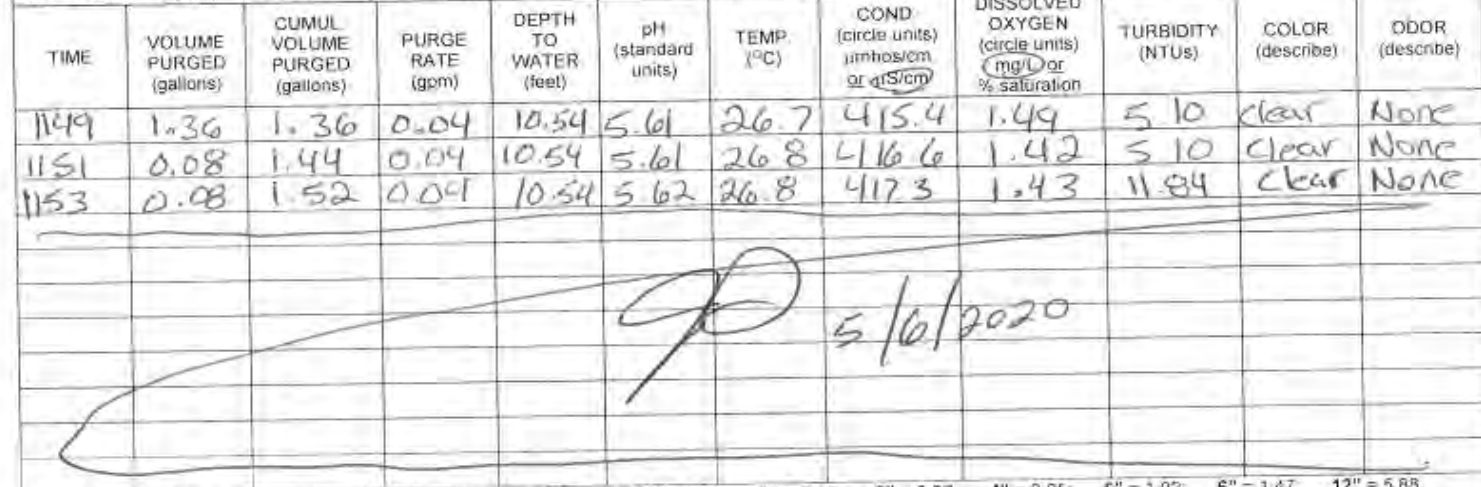 TIME VOLUME PURGED (gallons) CUMUL VOLUME PURGED (gallons) PURGE RATE (gpm) DEPTH TO WATER (feet) pH (standard units) TEMP. (°C) COND (circle units) µmhos/cm or µS/cm DISSOLVED OXYGEN (circle units) mg/L or % saturation TURBIDITY (NTUs) COLOR (describe) ODOR (describe)
1149 1.36 1.36 0.04 10.54 5.61 26.7 415.4 1.49 5.10 clear None
1151 0.08 1.44 0.04 10.54 5.61 26.8 416.6 1.42 5.10 Clear None
1153 0.08 1.52 0.04 10.54 5.62 26.8 417.3 1.43 11.84 Clear None
5/6/2020
6" = 1.47 12" = 5.88